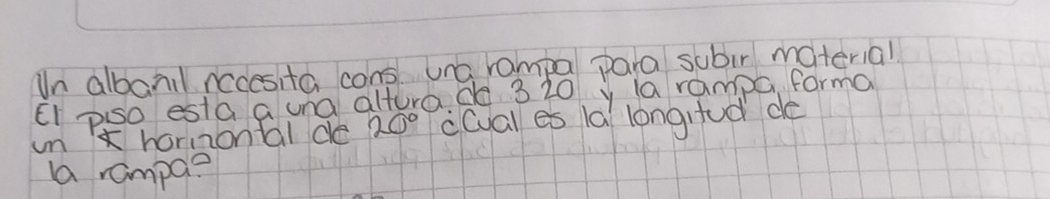 Un albanil necesita cons. una rampa para subir material.
El piso esta a una altura de 3 20 y la rampa, forma
un ∡ horizontal de 20° ¿Cual es la longitud de
la rampa?